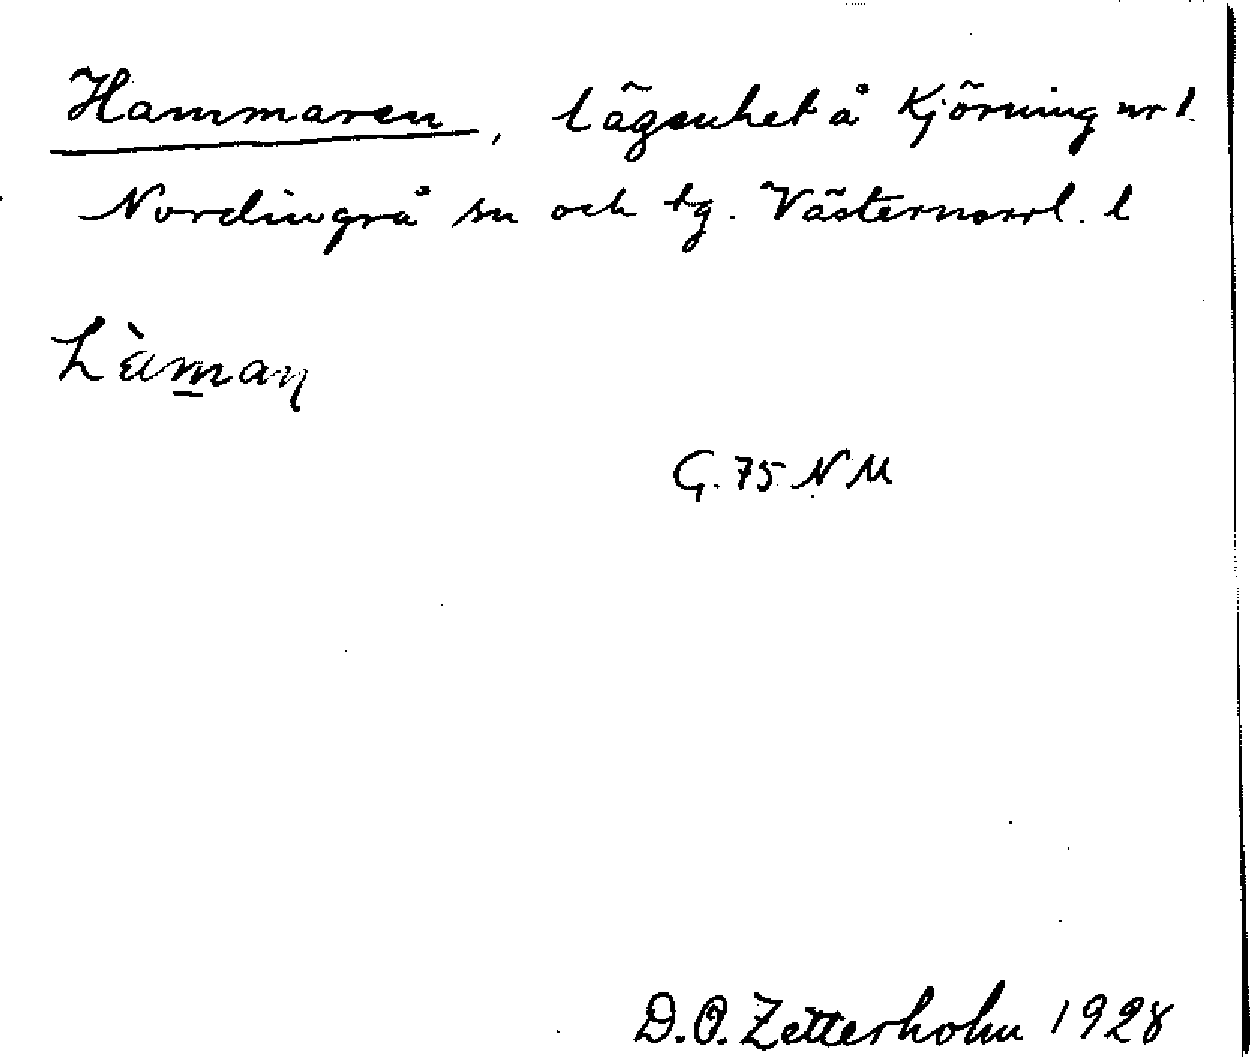 Hammaren, lägenhet å Kjörning nr 1
Nordingrå sn och tg. Västernorrl. l
G. 75 NM
D.O. Zetterholm 1928